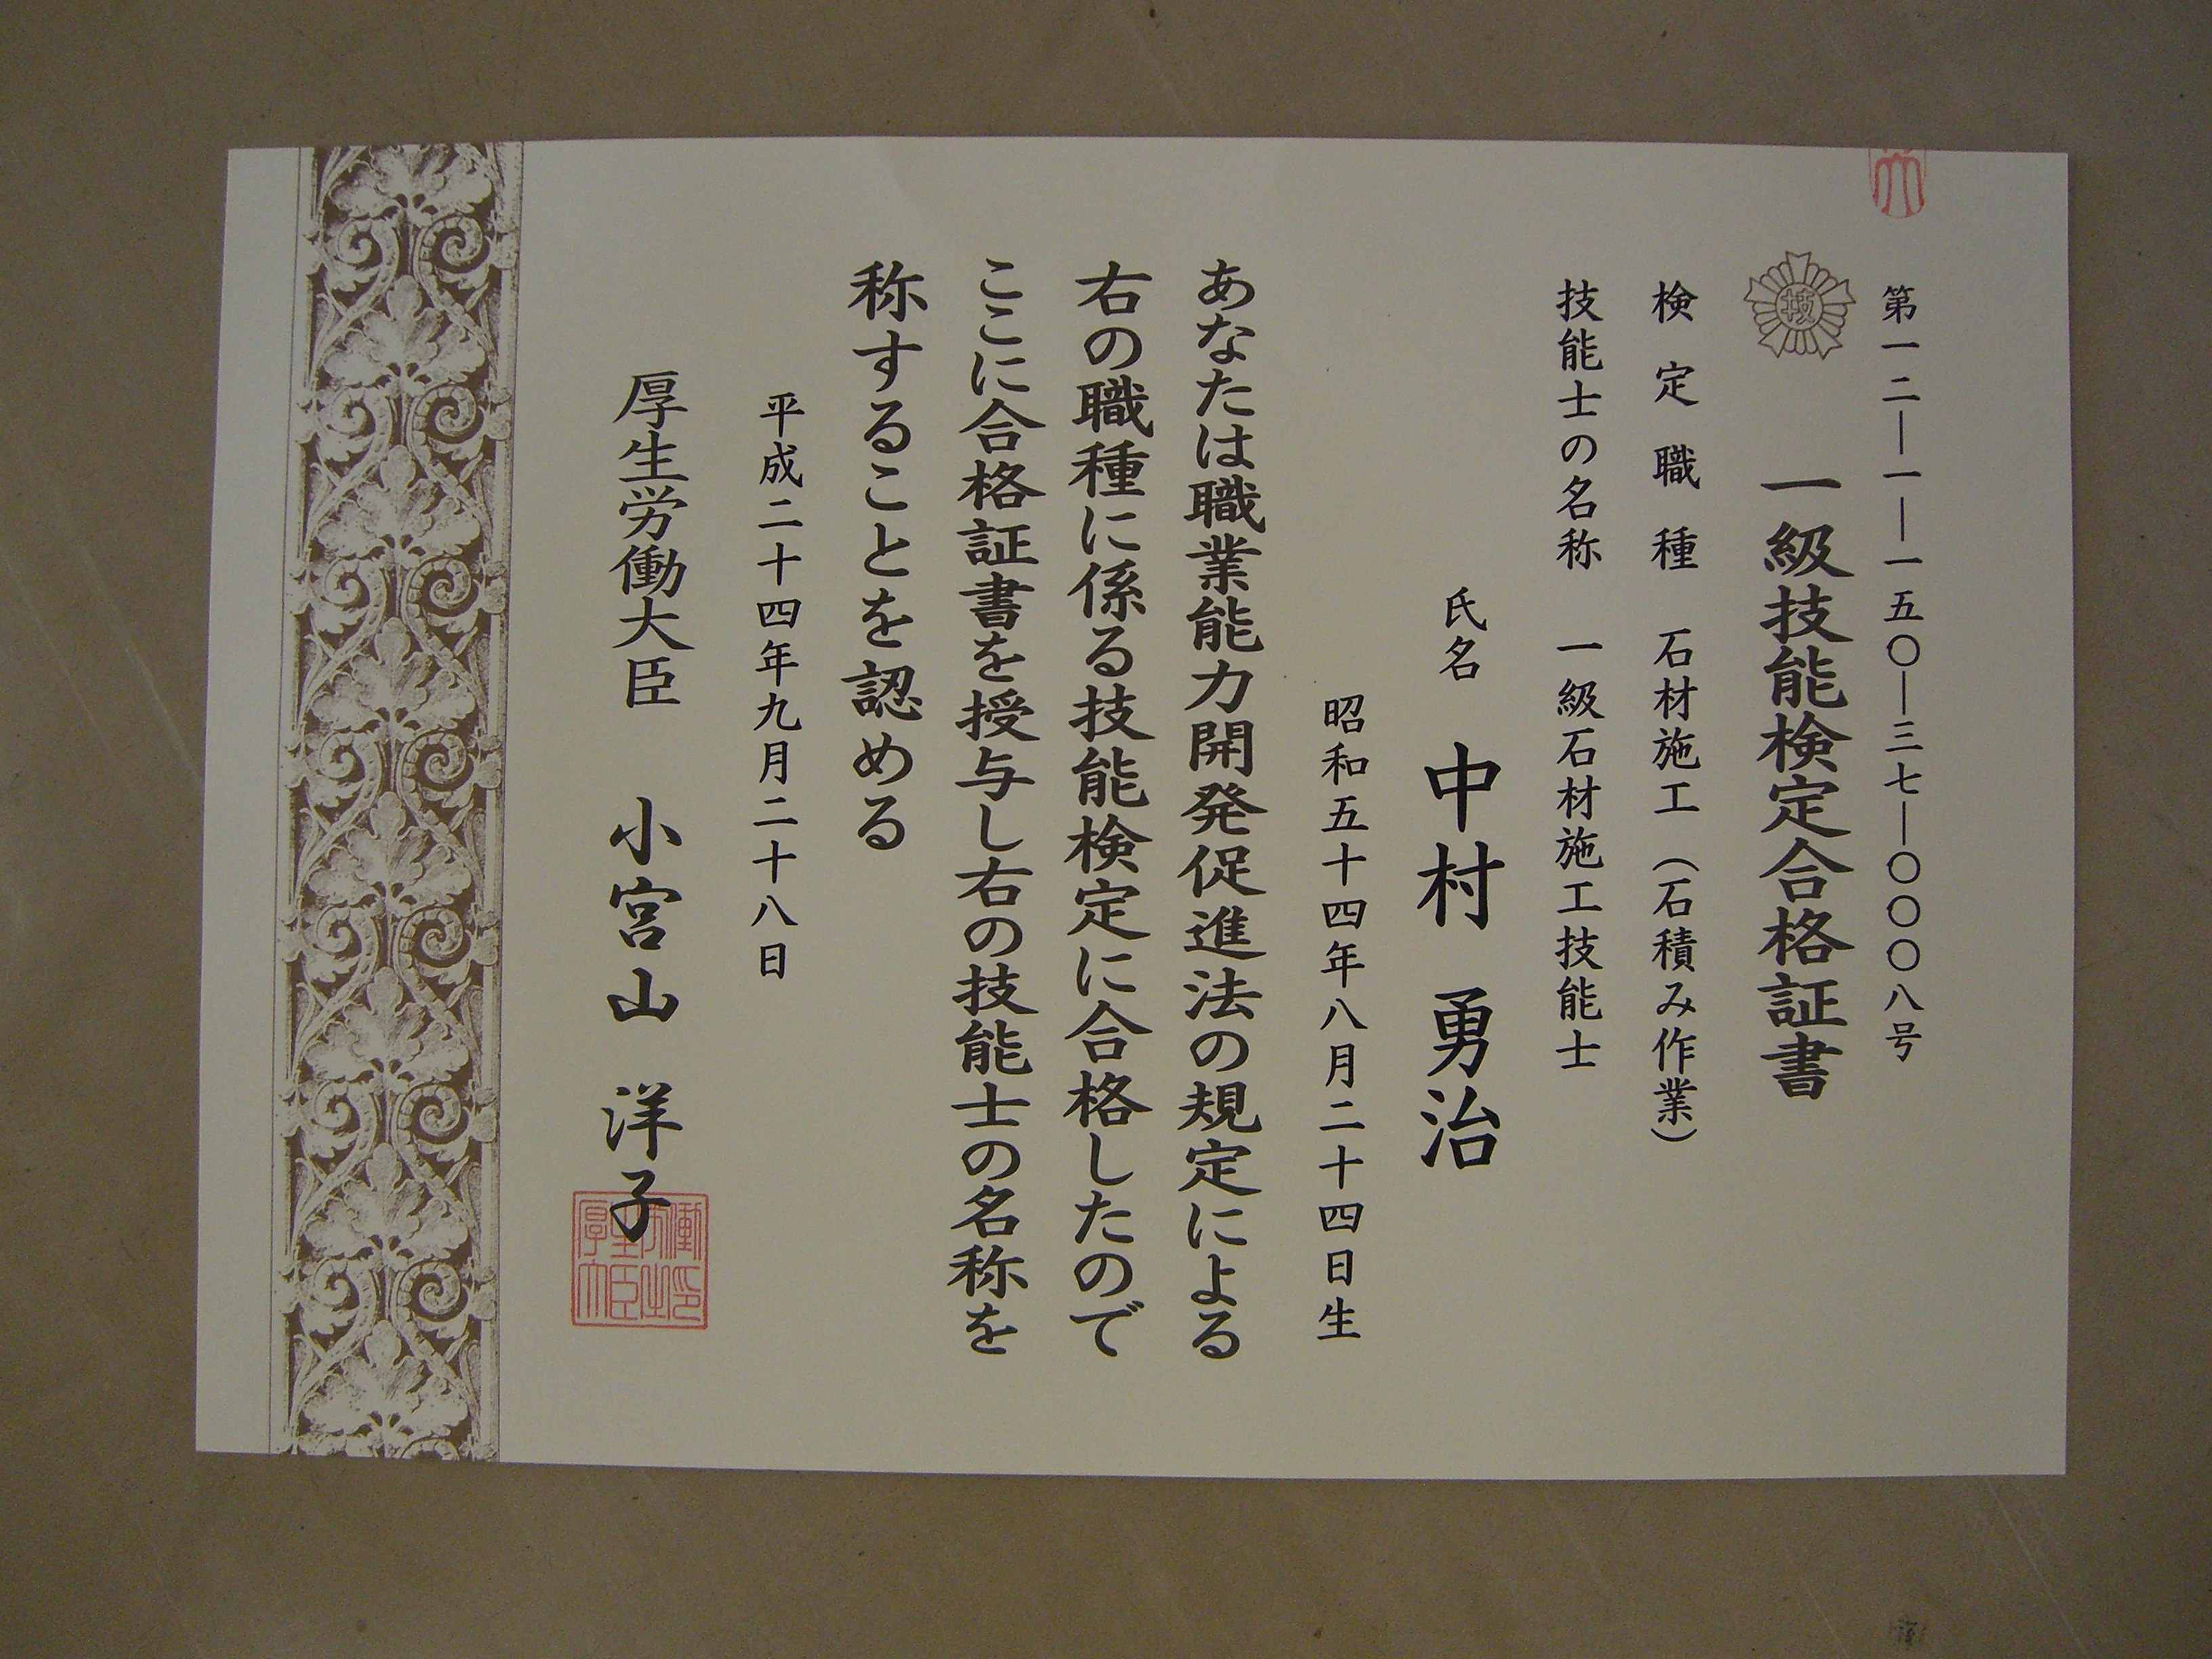 第一二―一―一五〇―三七―〇〇〇八号
技
一級技能検定合格証書
検定職種　石材施工（石積み作業）
技能士の名称　一級石材施工技能士
氏名　中村　勇治
昭和五十四年八月二十四日生
あなたは職業能力開発促進法の規定による
右の職種に係る技能検定に合格したので
ここに合格証書を授与し右の技能士の名称を
称することを認める
平成二十四年九月二十八日
厚生労働大臣　小宮山　洋子